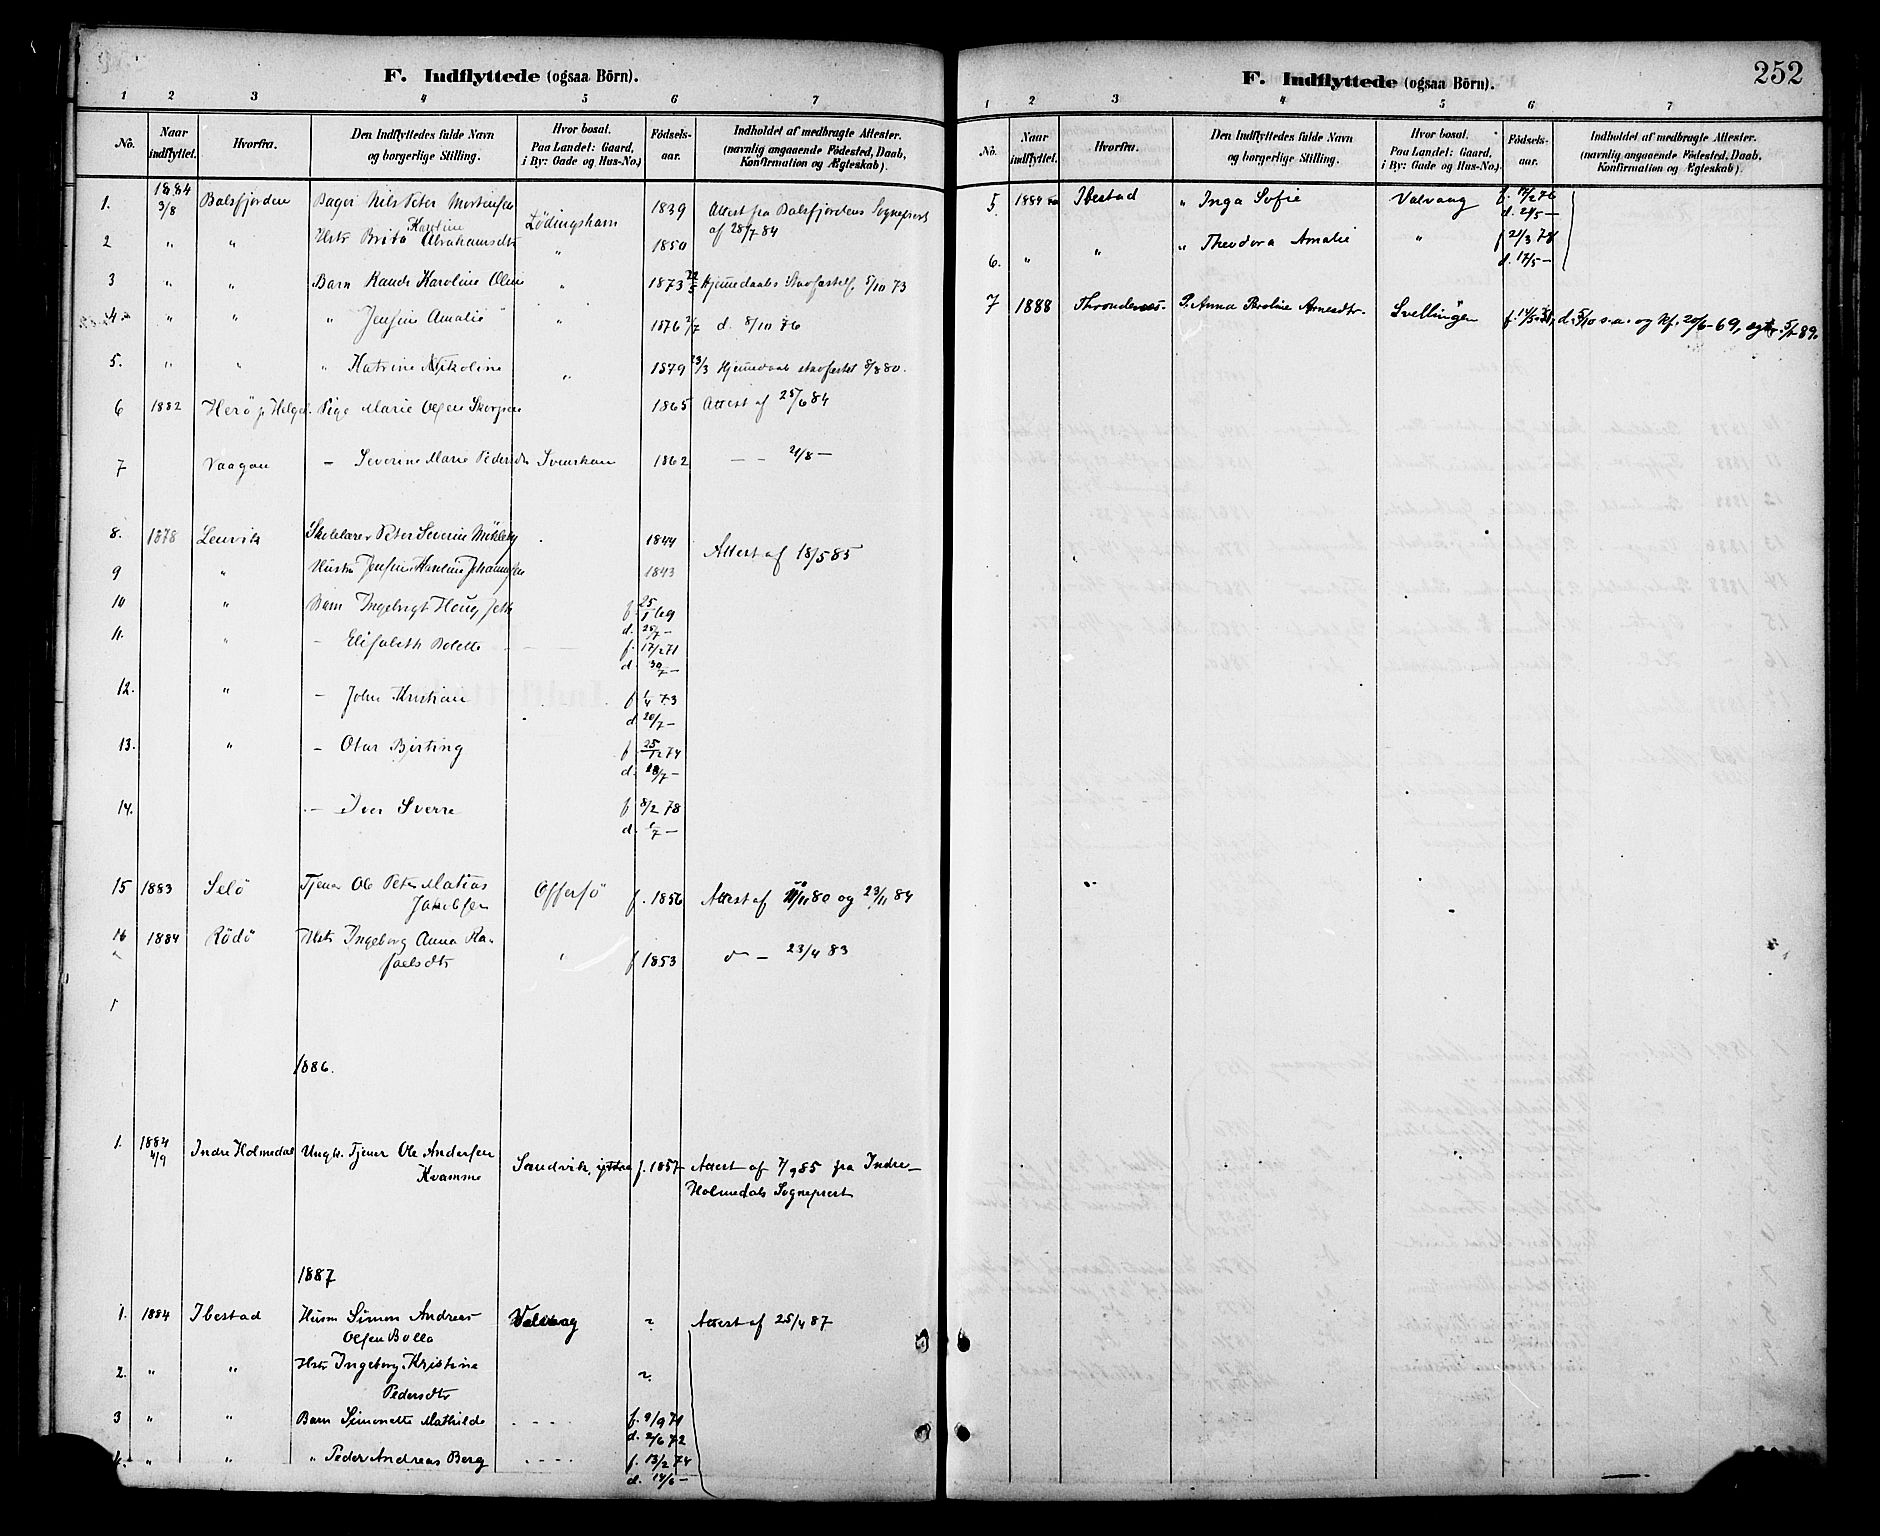 F. Indflyttede (ogsaa Börn).
1 2 3 4 5 6 7
No. Naar indflyttet. Hvorfra. Den Indflyttedes fulde Navn og borgerlige Stilling. Hvor bosat. Paa Landet: Gaard, i By: Gade og Hus-No.) Födsels-aar. Indholdet af medbragte Attester. (navnlig angaaende Födested, Daab, Konfirmation og Ægteskab).
1. 1884 3/8 Balsfjorden Bager Nils Peter Mortensen Lödingshavn 1839 Attest fra Balsfjordens Sogneprest
af 28/7 84
2 " " Hstr Brita Karoline Abrahamsdtr " 1850
3 " " Barn Karoline " 1873 Hjemmedøbt 5/10 73
4. " " " Jensine Amalie " 1876 2/7 d. 8/10 76
5. " " " Katrine Nikoline " 1879 23/3 Hjemmedøbt 80.
6 1882 Herö p. Helgel. Pige Marie Olsen 1865 Attest af 25/6 84
7 Vaagan - Severine Marie Pedersdtr Svenskan 1862 - - 21/8 -
8. 1878 Lenvik Skolelærer Peter Severin 1844
Attest af 18/5 85
9 " Hustru Jensine Karoline Johannesen 1843
10 " Barn Ingebrigt f. 25/1 69
d. 25/7 -
11. " - Elisabeth Bolette f. 17/2 71
d. 30/7 -
12. " - John Kristian f. 1/4 73
d. 20/7 -
13. " - Otar Birting f. 25/12 74
d. 18/7 -
14. - Iver Sverre f 8/2 78
d. 1/7 -
15 1883 Selö Tjener Ole Peter Matias Offersö f. 1856 Attest af 80 og 23/11 84
Jakobsen
16 1884 Rödö Hstr Ingeborg Anna Ra- " f 1853 - 23/4 83
faelsdtr
1886.
1. 1884 4/9 Indre Holmedal Ungk. Tjener Ole Andersen Sandvik, f. 1857 Attest af 7/9 85 fra Indre
Kvamme Holmedals Sogneprest
1887
1. 1884 Ibestad Husm Simon Andreas Valvaag ~ Attest af 25/4 87
Olsen Bolla
2. " " Hstr Ingeborg Kristine ~
Pedersdtr
3 " " Barn Simonette Mathilde - - - - f. 9/9 71
d. 2/6 72
4. " " " Peder Andreas Berg - - - - f. 13/2 74
d. 14/6 -
252
F. Indflyttede (ogsaa Börn).
1 2 3 4 5 6 7
No. Naar indflyttet. Hvorfra. Den Indflyttedes fulde Navn og borgerlige Stilling. Hvor bosat. Paa Landet: Gaard, i By: Gade og Hus-No.) Födsels-aar. Indholdet af medbragte Attester. (navnlig angaaende Födested, Daab, Konfirmation og Ægteskab).
5. 1884 Ibestad " Inga Sofie Valvaag f. 17/2 76
d. 2/5 -
6. " " " Theodora Amalie " f 21/3 78
d. 17/5 -
7 1888 Throndenes. P. Anna Arnesdtr. Svellingen d. 5/10 s.a. og kf. 20/6 - 69, 89.